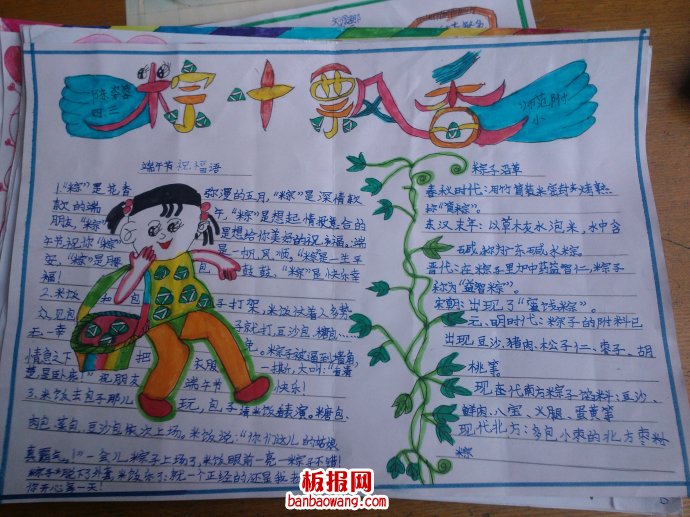 粽子飘香
师范附小
端午节祝福语
1."粽"是花香弥漫的五月,"粽"是深情款
款的端午,"粽"是想起情投意合的
朋友,"粽"是想给你美好的祝福,端
午节祝你"粽"是一帆风顺,"粽"是一生平
安,"粽"是腰包鼓鼓,"粽"是快乐幸
福!
2.米饭和包子打架,米饭仗着人多势
众,见包子就打,豆沙包、糖包
无一幸
情急之下把衣服一撕,大叫:
卧底!"祝朋友端午节快乐!
3.米饭去包子那儿玩,包子请米饭看表演。糖包、
肉包、菜包、豆沙包依次上场。米饭说:"你们这儿的姑娘
真霸气。"一会儿粽子上场了,米饭眼前一亮
你开心每一天!
粽子沿革
春秋时代:用竹筒装米密封
称"筒粽"。
东汉末年:以草木灰水泡米,水中含
碱,称为广东碱水粽。
晋代:在粽子里加中药益智仁,粽子
称为"益智粽"。
宋朝:出现了"蜜饯粽"。
元、明时代:粽子的附料已
出现豆沙、猪肉、松子仁、枣子、胡
桃等
现在代南方粽子馅料:豆沙、
鲜肉、八宝、火腿、蛋黄等
现代北方:多包小枣的北方枣粽
板报网
banbaowang.com